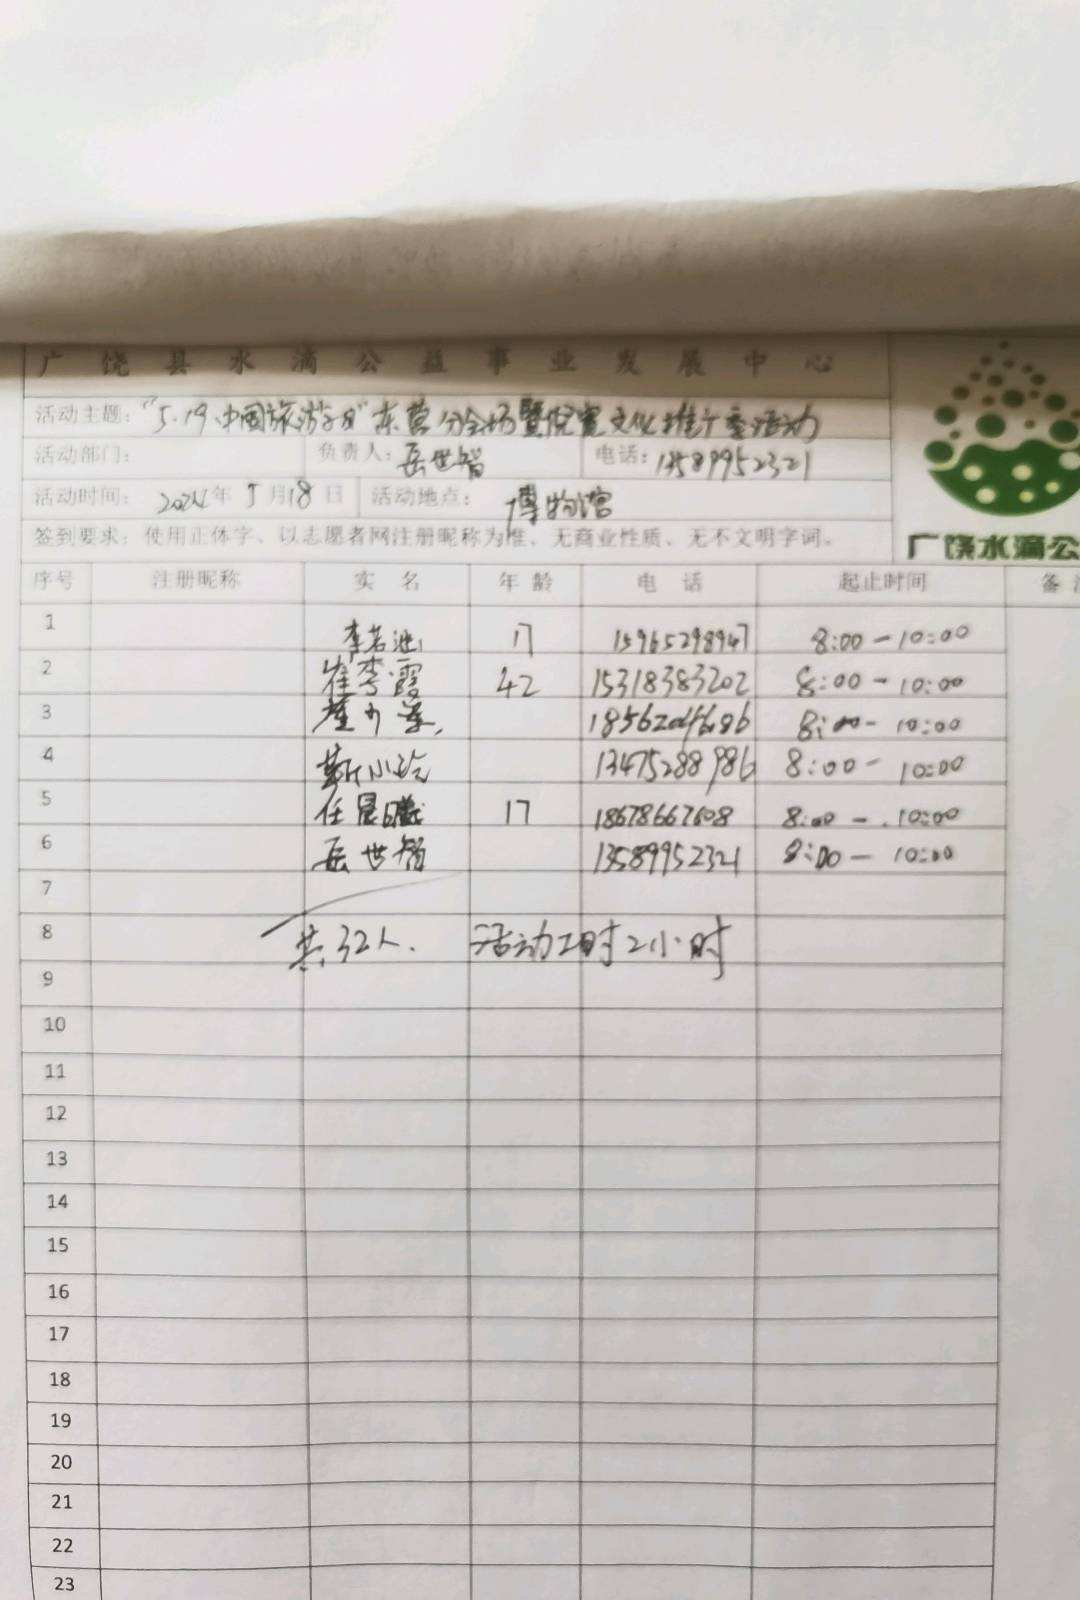 广饶县水滴公益事业发展中心
活动主题："5.19.中国旅游日"东营分会场暨倪宽文化推广季活动
活动部门： 负责人：岳世智 电话：13589952321
活动时间：2024年5月18日 活动地点：博物馆
签到要求：使用正体字、以志愿者网注册昵称为准、无商业性质、无不文明字词。
广饶水滴公
序号 注册昵称 实名 年龄 电话 起止时间 备
1 李若 17 15965298947 8:00-10:00
2 崔季霞 42 15318383202 8:00-10:00
3 8:00-10:00
4 靳小玲 13475288986 8:00-10:00
5 任晨曦 17 18678667608 8:00-10:00
6 岳世智 13589952321 8:00-10:00
7
8 共32人. 活动工时2小时
9
10
11
12
13
14
15
16
17
18
19
20
21
22
23